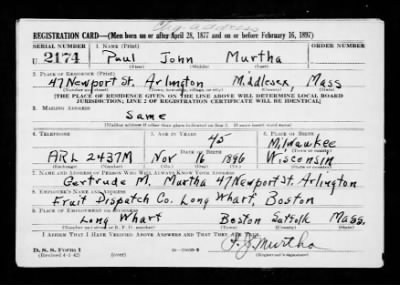 REGISTRATION CARD—(Men born on or after April 28, 1877 and on or before February 16, 1897)
SERIAL NUMBER 1. NAME (Print) ORDER NUMBER
U 2174 Paul John Murtha
(First) (Middle) (Last)
2. PLACE OF RESIDENCE (Print)
47 Newport St. Arlington Middlesex, Mass
[THE PLACE OF RESIDENCE GIVEN ON THE LINE ABOVE WILL DETERMINE LOCAL BOARD
JURISDICTION; LINE 2 OF REGISTRATION CERTIFICATE WILL BE IDENTICAL]
3. MAILING ADDRESS
Same
4. TELEPHONE 5. AGE IN YEARS 6. PLACE OF BIRTH
45 Milwaukee
DATE OF BIRTH (Town or county)
ARL 2437M Nov 16 1896 Wisconsin
(Exchange) (Number) (Mo.) (Day) (Yr.) (State or country)
7. NAME AND ADDRESS OF PERSON WHO WILL ALWAYS KNOW YOUR ADDRESS
Gertrude M. Murtha 47 Newport St. Arlington
8. EMPLOYER'S NAME AND ADDRESS
Fruit Dispatch Co. Long Wharf, Boston
9. PLACE OF EMPLOYMENT OR BUSINESS
Long Wharf Boston Suffolk Mass.
(Number and street or R. F. D. number) (Town) (County) (State)
I AFFIRM THAT I HAVE VERIFIED ABOVE ANSWERS AND THAT THEY ARE TRUE.
P. J. Murtha
D. S. S. Form 1
(Revised 4-1-42) (over) (Registrant's signature)